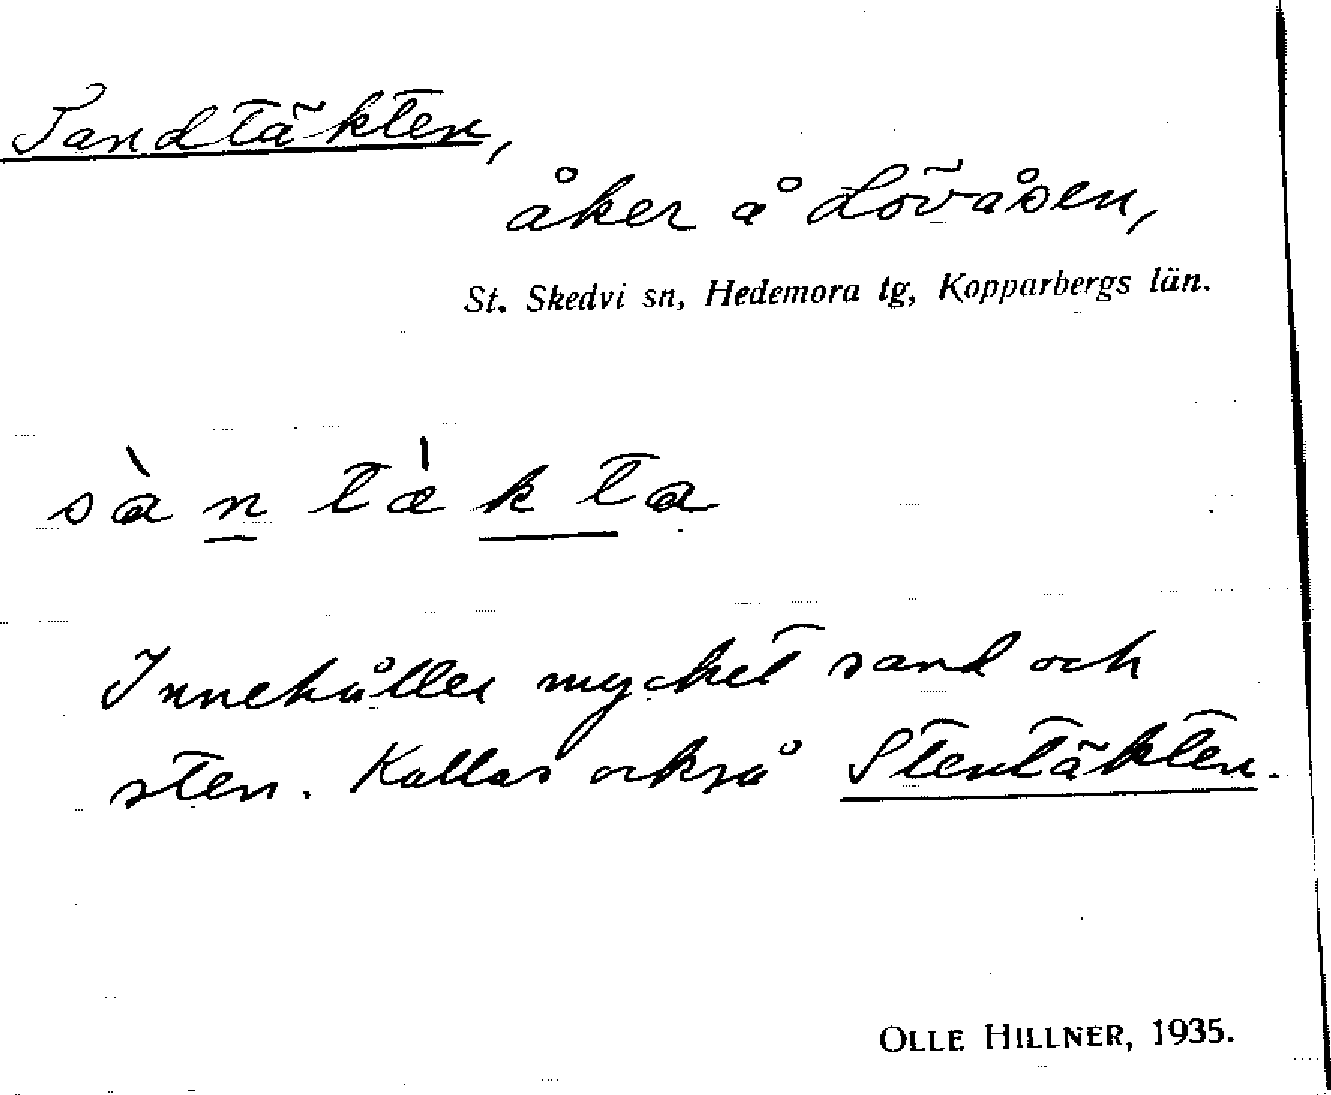 Sandtäkten,
åker å Lövåsen,
St. Skedvi sn, Hedemora tg, Kopparbergs län.
sàn tæ̀kta
Innehåller mycket sand och
sten. Kallas också Stentäkten.
OLLE HILLNER, 1935.